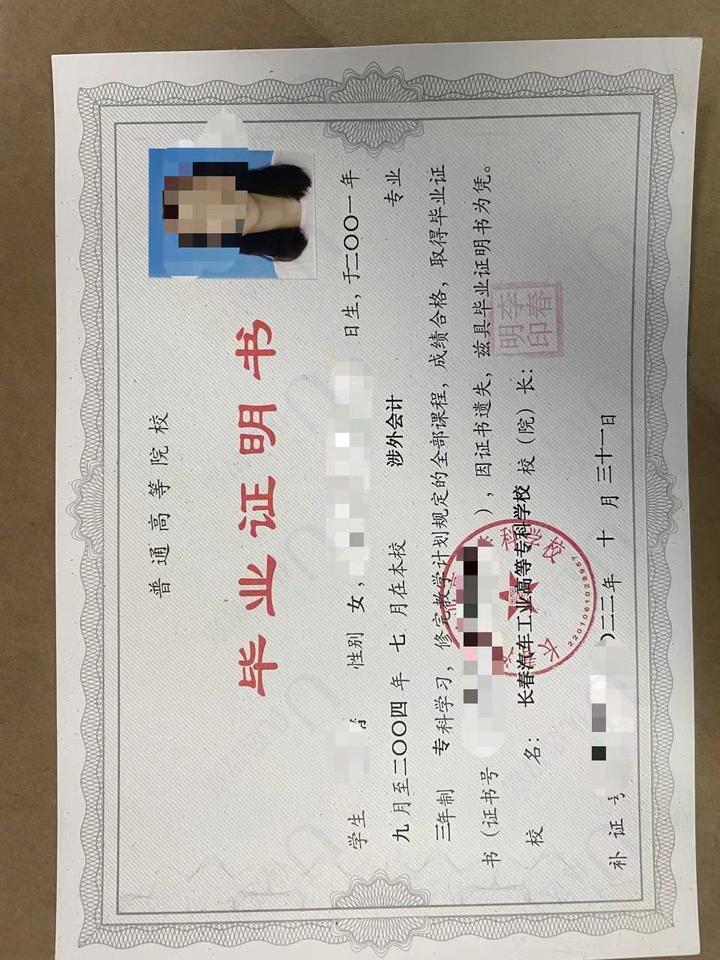 普通高等院校
毕业证明书
学生 性别 女， 日生，于二〇〇一年
九月至二〇〇四年 七 月在本校 涉外会计 专业
三年制 专科学习，修完教学计划规定的全部课程，成绩合格，取得毕业证
书（证书号 ），因证书遗失，兹具毕业证明书为凭。
校 名： 长春汽车工业高等专科学校 校（院）长：
李春
明印
科学校
2201061028967
补 证 〇二二年 十 月 三十一日